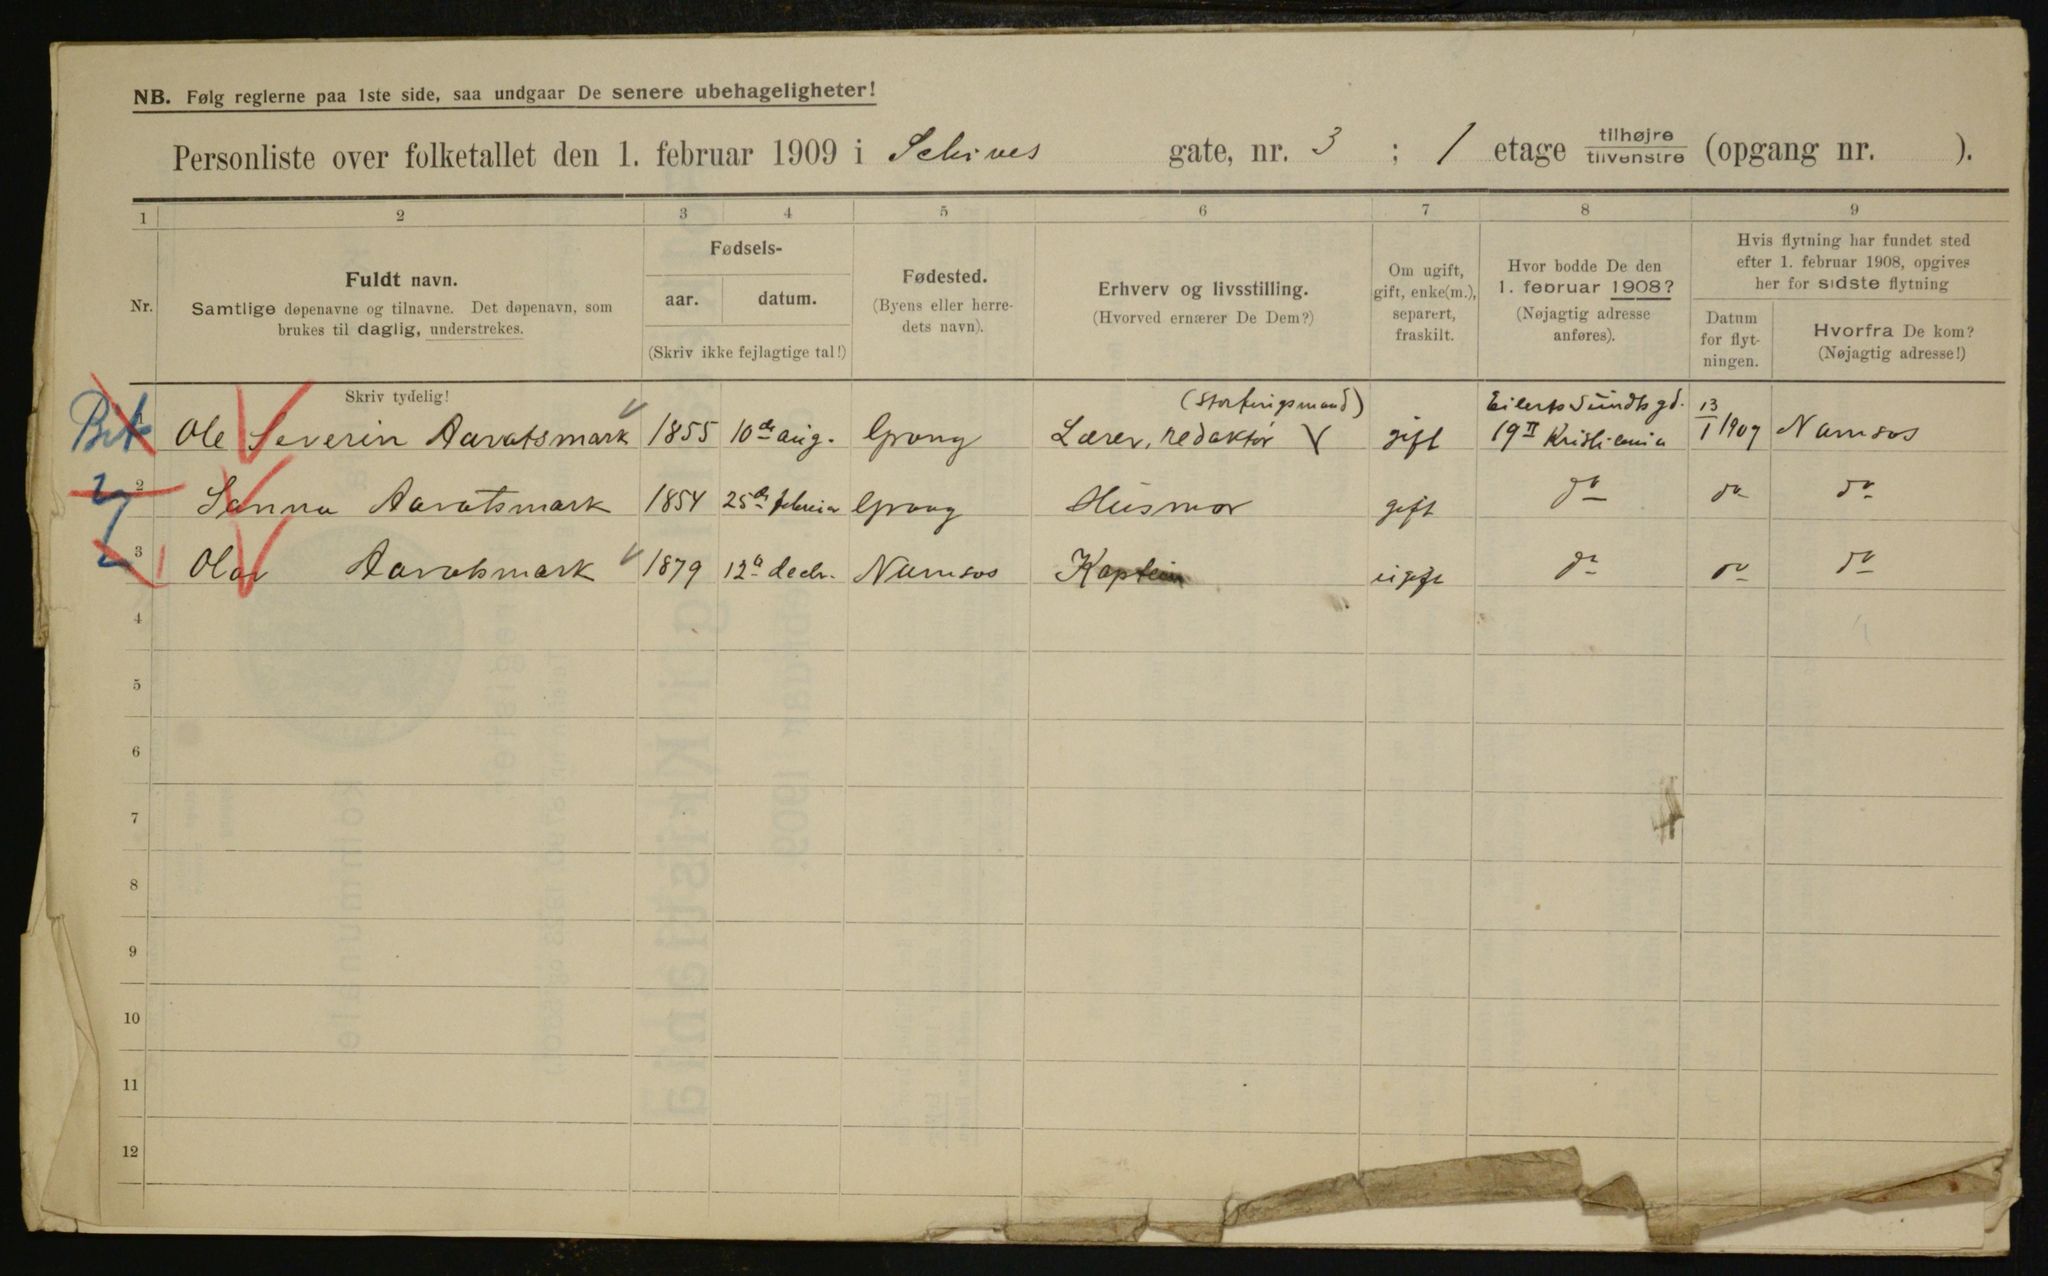 NB. Følg reglerne paa 1ste side, saa undgaar De senere ubehageligheter!
Personliste over folketallet den 1. februar 1909 i Schives gate, nr. 3 ; 1 etage tilhøjre tilvenstre (opgang nr. ).
1 2 3 4 5 6 7 8 9
Nr.
Fuldt navn.
Samtlige døpenavne og tilnavne. Det døpenavn, som
brukes til daglig, understrekes.
Fødsels-
aar. datum.
(Skriv ikke fejlagtige tal!)
Fødested.
(Byens eller herre-
dets navn).
Erhverv og livsstilling.
(Hvorved ernærer De Dem?)
Om ugift,
gift, enke(m.),
separert,
fraskilt.
Hvor bodde De den
1. februar 1908?
(Nøjagtig adresse
anføres).
Hvis flytning har fundet sted
efter 1. februar 1908, opgives
her for sidste flytning
Datum
for flyt-
ningen.
Hvorfra De kom?
(Nøjagtig adresse!)
Skriv tydelig!
(Stortingsmand) Eilert Sundts gd.
1 Ole Severin Aavatsmark 1855 10de aug. Grong Lærer, redaktør gift 19 II Kristiania 13/1 1909 Namsos
2 Sanna Aavatsmark 1854 25de februar Grong Husmor gift do do do
3 Olav Aavatsmark 1879 12te decbr. Namsos Kaptein ugift do do do
4
5
6
7
8
9
10
11
12